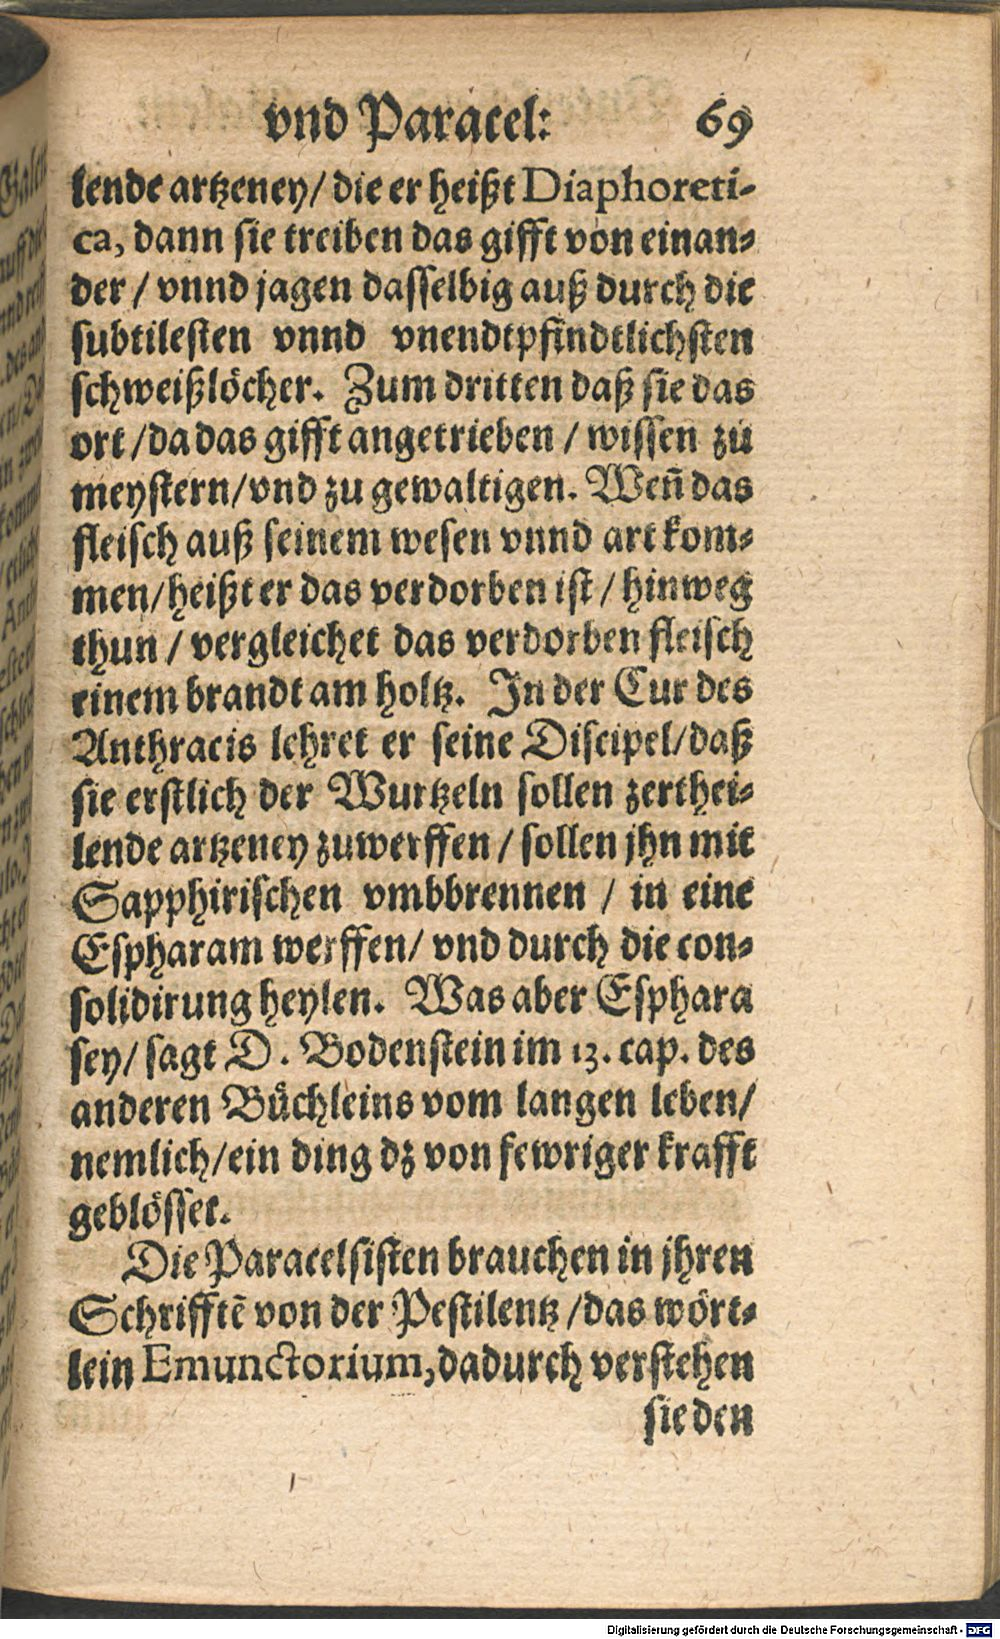 vnd Paracel: 69
lende artzeney/ die er heißt Diaphoreti-
ca, dann sie treiben das gifft von einan-
der / vnnd jagen dasselbig auß durch die
subtilesten vnnd vnendtpfindtlichsten
schweißlöcher. Zum dritten daß sie das
ort /da das gifft angetrieben / wissen zu
meystern/vnd zu gewaltigen. Weñ das
fleisch auß seinem wesen vnnd art kom-
men/heißt er das verdorben ist / hinweg
thun / vergleichet das verdorben fleisch
einem brandt am holtz. In der Cur des
Anthracis lehret er seine Discipel/daß
sie erstlich der Wurtzeln sollen zerthei-
lende artzeney zuwerffen / sollen jhn mit
Sapphirischen vmbbrennen / in eine
Espharam werffen/ vnd durch die con-
solidirung heylen. Was aber Esphara
sey/ sagt D. Bodenstein im 13. cap. des
anderen Büchleins vom langen leben/
nemlich/ein ding dz von fewriger krafft
geblösset.
Die Paracelsisten brauchen in jhren
Schrifftẽ von der Pestilentz /das wört-
lein Emunctorium,dadurch verstehen
sie den
Digitalisierung gefördert durch die Deutsche Forschungsgemeinschaft - DFG